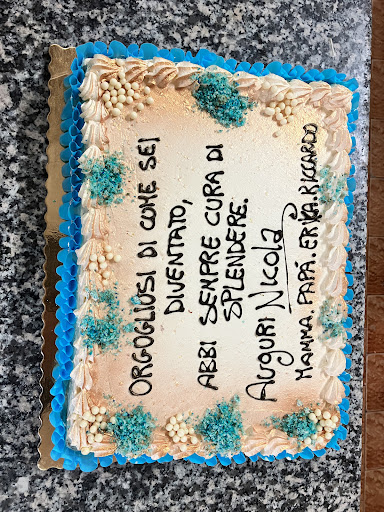 ORGOGLIOSI DI COME SEI
DIVENTATO,
ABBI SEMPRE CURA DI
SPLENDERE.
Auguri Nicola
MAMMA. PAPÁ. ERIKA. RICCARDO